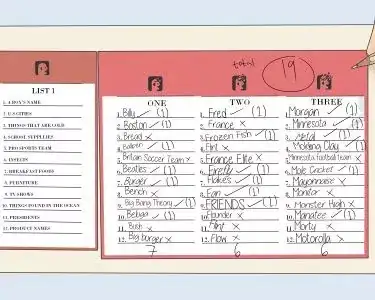 total 19
LIST 1
1. A BOY'S NAME
2. U.S. CITIES
3. THINGS THAT ARE COLD
4. SCHOOL SUPPLIES
5. PRO SPORTS TEAM
6. INSECTS
7. BREAKFAST FOODS
8. FURNITURE
9. TV SHOWS
10. THINGS FOUND IN THE OCEAN
11. PRESIDENTS
12. PRODUCT NAMES
ONE
1. Billy ✓ (1)
2. Boston ✓ (1)
3. Bread ×
4. ✓ (1)
5. Britain Soccer Team ×
6. Beatles ✓ (1)
7. Burger ✓ (1)
8. Bench ×
9. Big Bang Theory ✓ (1)
10. Beluga ✓ (1)
11. Bush ×
12. Big burger ×
7
TWO
1. Fred ✓ (1)
2. France ×
3. Frozen Fish ✓ (1)
4. Flint ×
5. France Elite ×
6. Firefly ✓ (1)
7. Flakes ✓ (1)
8. Fan ✓ (1)
9. FRIENDS ✓ (1)
10. Flounder ×
11. Flint ×
12. Flow ×
6
THREE
1. Morgan ✓ (1)
2. Minnesota ✓ (1)
3. Metal ✓ (1)
4. Molding Clay ✓ (1)
5. Minnesota football team ×
6. Male Cricket ✓ (1)
7. Mayonnaise ×
8. ×
9. Monster High ×
10. Manatee ✓ (1)
11. Morty ×
12. Motorolla ×
6